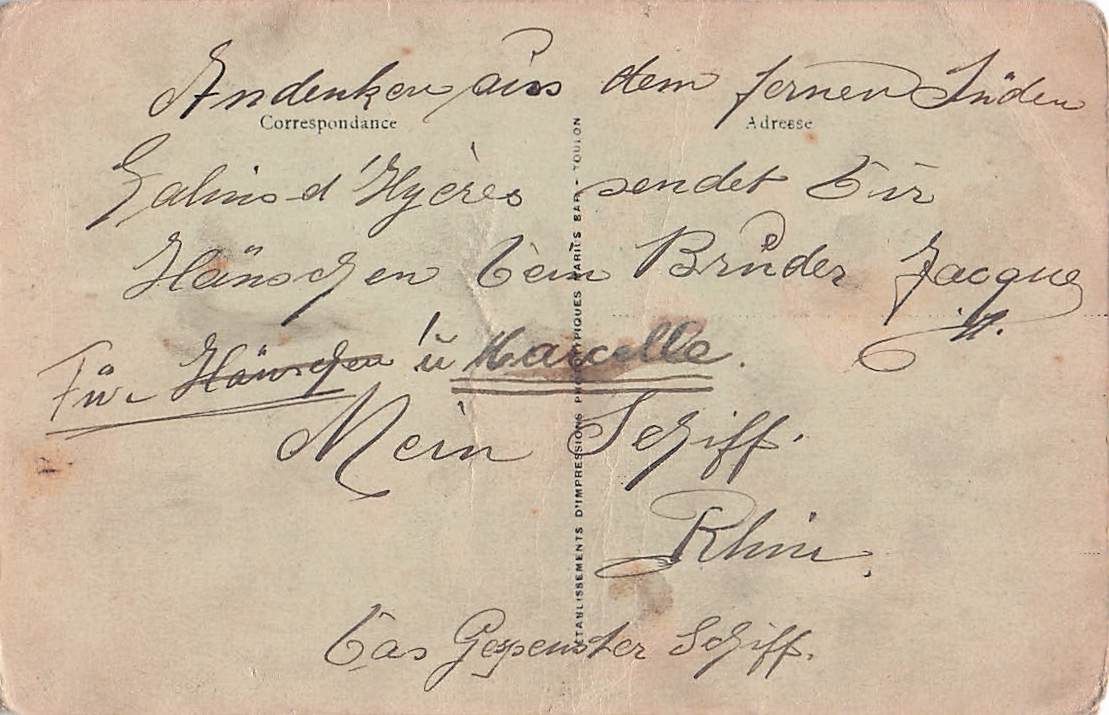 Andenken aus dem fernen Süden
Correspondance
Adresse
Salins d'Hyères sendet Dir
Hänschen Dein Bruder Jacques
Für Hänschen u Marcelle.
Mein Schiff.
Rhin.
Das Gespenster Schiff.
ETABLISSEMENTS D'IMPRESSIONS PHOTOTYPIQUES MARIUS BAR - TOULON